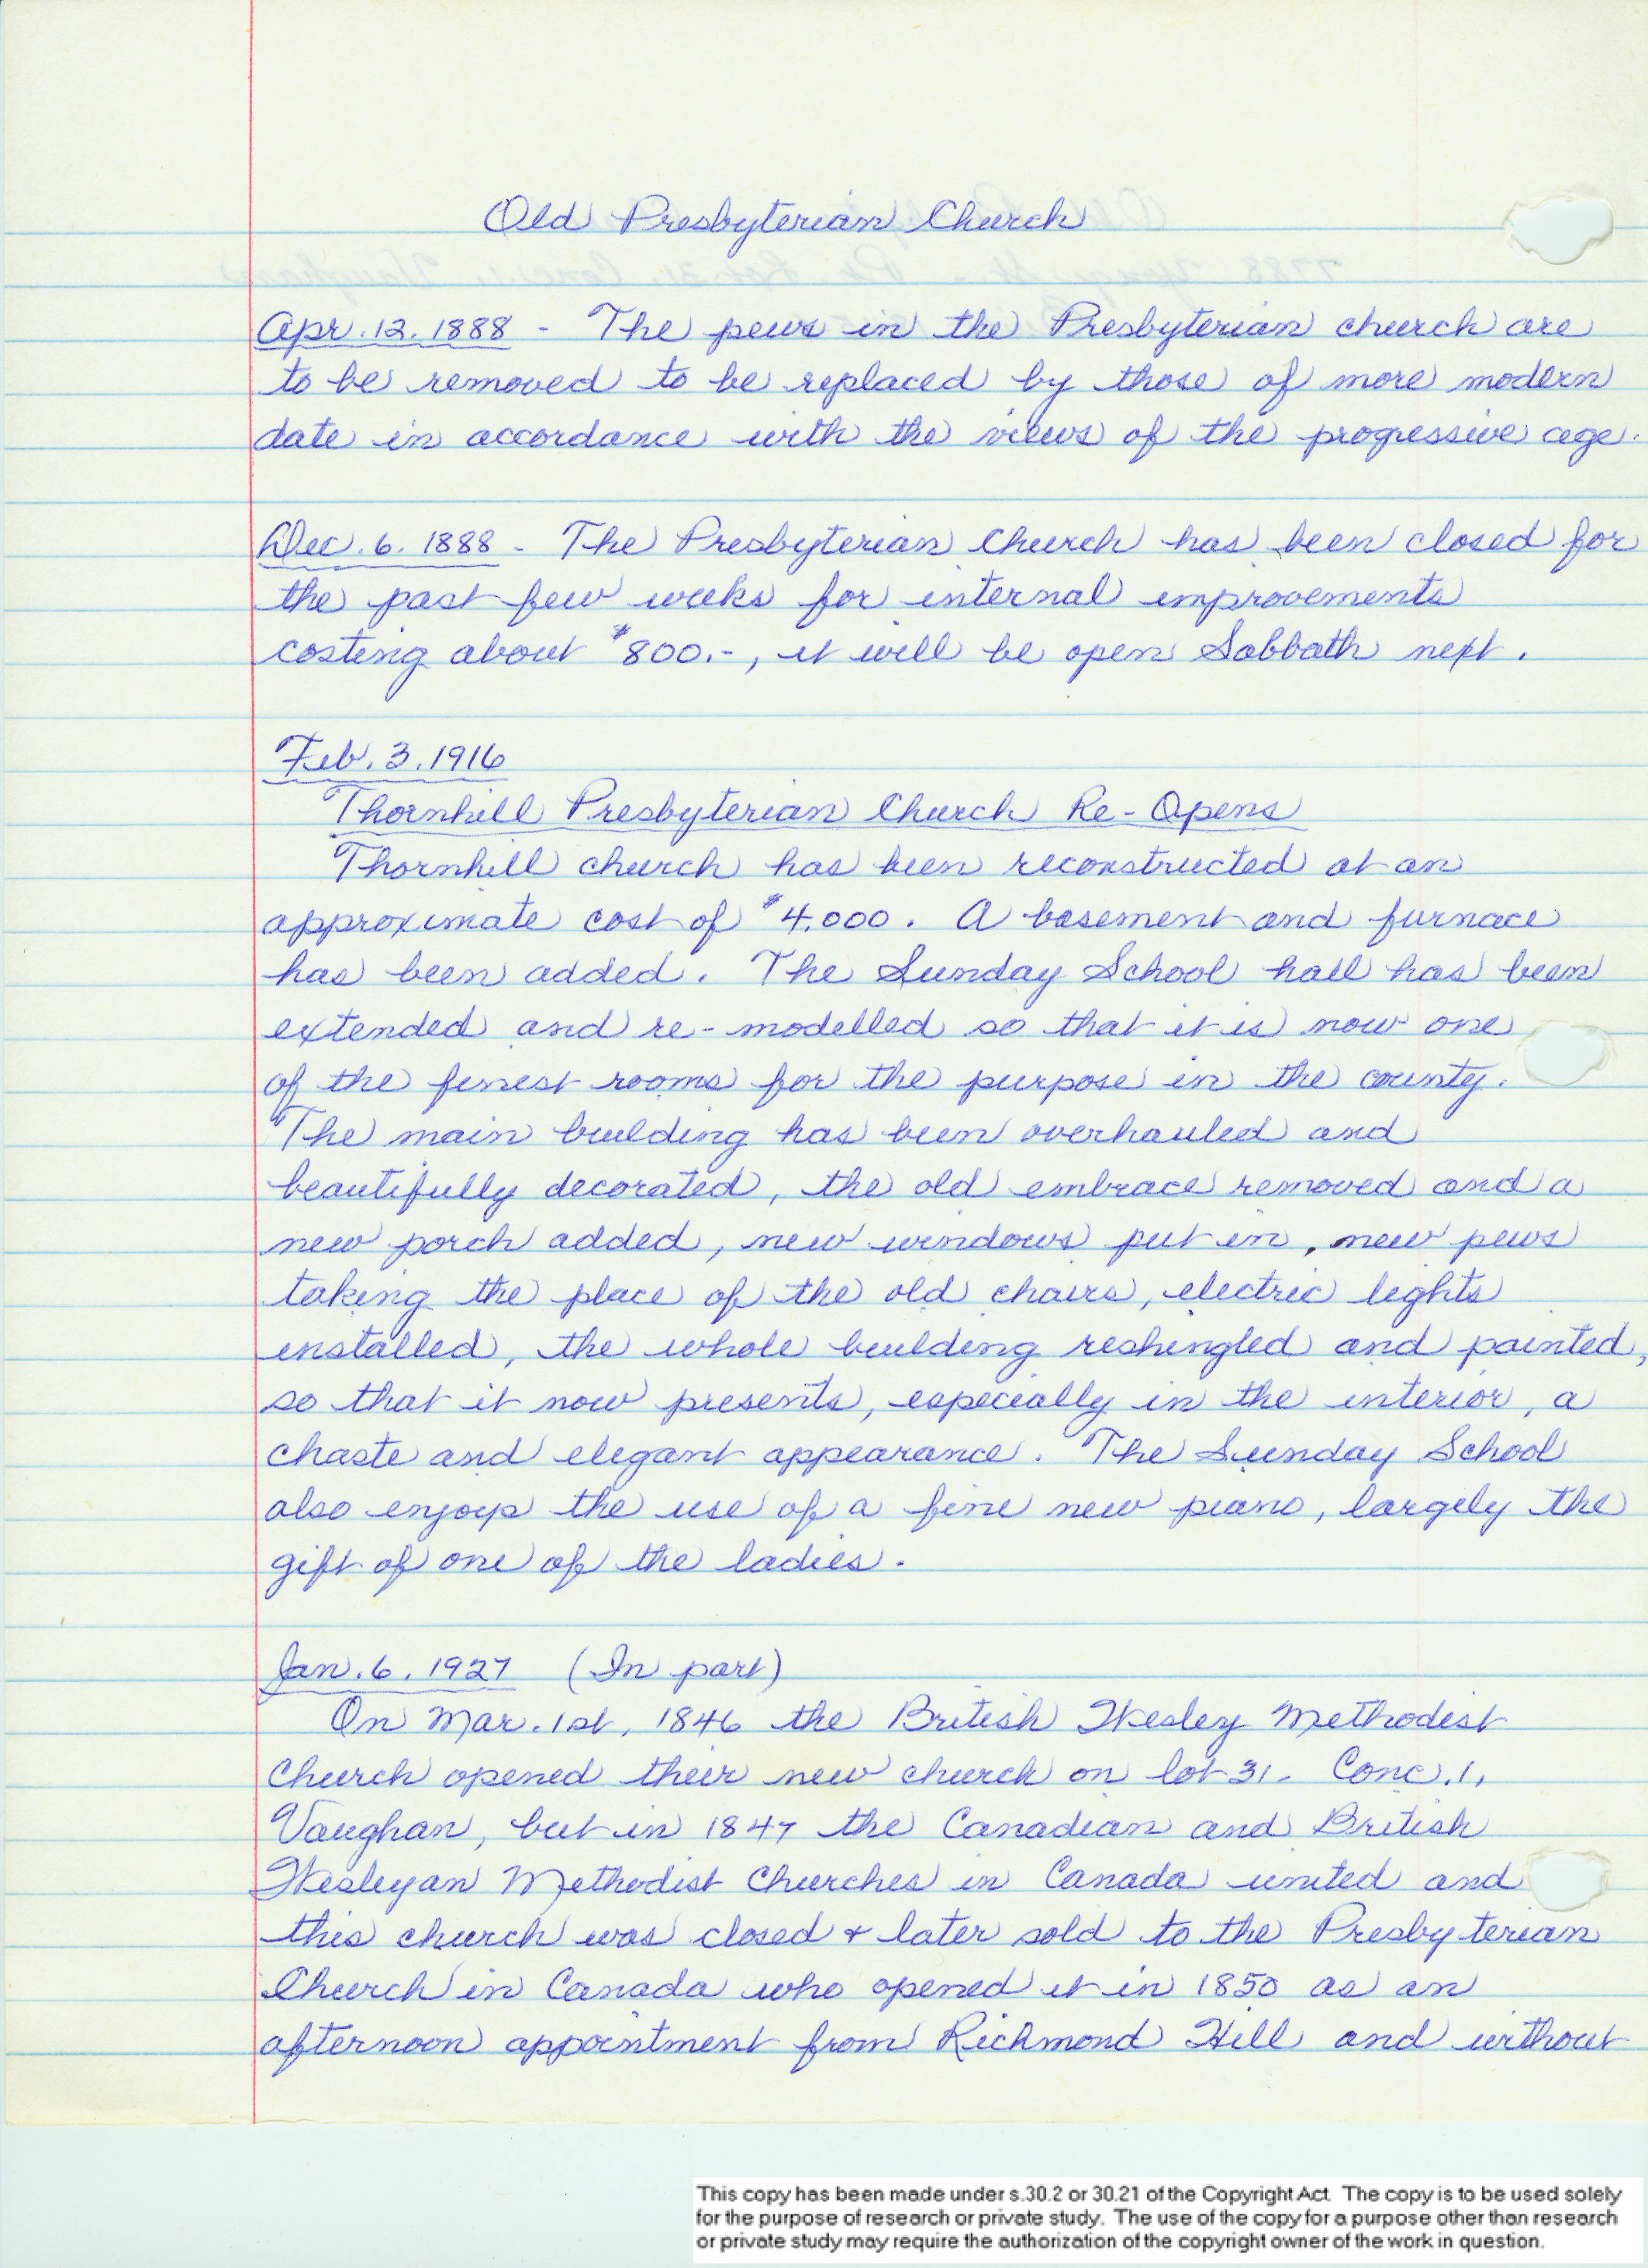 Old Presbyterian Church
Apr. 12. 1888 - The pews in the Presbyterian church are
to be removed to be replaced by those of more modern
date in accordance with the views of the progressive age.
Dec. 6. 1888 - The Presbyterian Church has been closed for
the past few weeks for internal improvements
costing about $800.-, it will be open Sabbath next.
Feb. 3. 1916
Thornhill Presbyterian Church Re-Opens
Thornhill church has been reconstructed at an
approximate cost of $4,000. A basement and furnace
has been added. The Sunday School hall has been
extended and re-modelled so that it is now one
of the finest rooms for the purpose in the county.
The main building has been overhauled and
beautifully decorated, the old embrace removed and a
new porch added, new windows put in, new pews
taking the place of the old chairs, electric lights
installed, the whole building reshingled and painted,
so that it now presents, especially in the interior, a
chaste and elegant appearance. The Sunday School
also enjoys the use of a fine new piano, largely the
gift of one of the ladies.
Jan. 6. 1927 (In part)
On Mar. 1st, 1846 the British Wesley Methodist
Church opened their new church on lot 31. Conc. 1,
Vaughan, but in 1847 the Canadian and British
Wesleyan Methodist Churches in Canada united and
this church was closed & later sold to the Presbyterian
Church in Canada who opened it in 1850 as an
afternoon appointment from Richmond Hill and without
This copy has been made under s.30.2 or 30.21 of the Copyright Act. The copy is to be used solely
for the purpose of research or private study. The use of the copy for a purpose other than research
or private study may require the authorization of the copyright owner of the work in question.